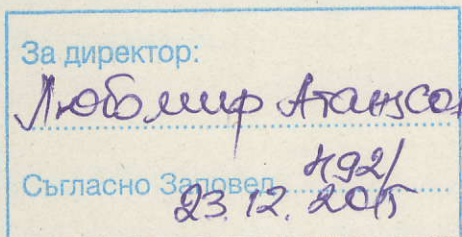 За директор:
Любомир Атанасо
Съгласно Заповед 492/
23.12.2015